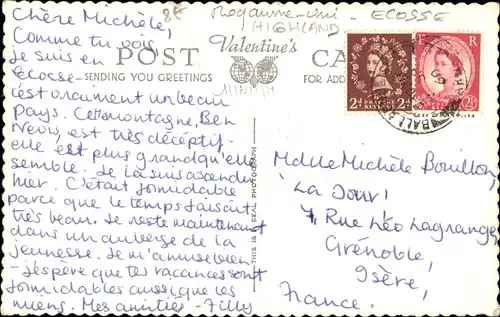 8€ Royaume-Uni - ECOSSE
HIGHLAND
Chère Michèle,
Comme tu vois,
Je suis en
Ecosse-
c'est vraiment un beau
Pays. Cette montagne, Ben
Nevis, est très déceptif-
elle est plus grand qu'elle
semble. Je la suis ascendu
hier. C'était formidable
parce que le temps faisait
très beau. Je reste maintenant
dans un auberge de la
jeunesse. Je m'amuse bien
- j'espère que tes vacances sont
formidables aussi que les
miens. Mes amitiés - Jilly
POST Valentine's CA
SENDING YOU GREETINGS
FOR ADD
THIS IS A REAL PHOTOGRAPH
2d POSTAGE 2d
E R
2½
BALLA
Mdlle Michèle Bouillon,
"La Jour"
7, Rue Léo Lagrange,
Grénoble,
Isère,
France.